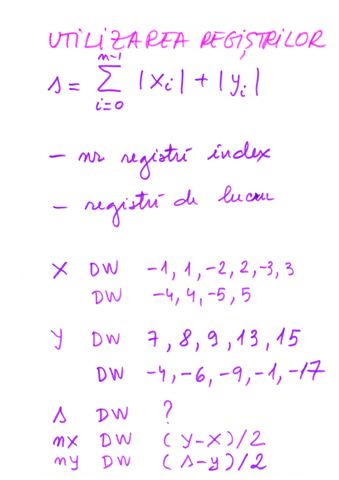 UTILIZAREA REGIȘTRILOR
s = n-1 Σ i=0 |xi| + |yi|
- nr registri index
- registri de lucru
X DW -1, 1, -2, 2, -3, 3
DW -4, 4, -5, 5
Y DW 7, 8, 9, 13, 15
DW -4, -6, -9, -1, -17
s DW ?
nx DW (y-x)/2
ny DW (s-y)/2